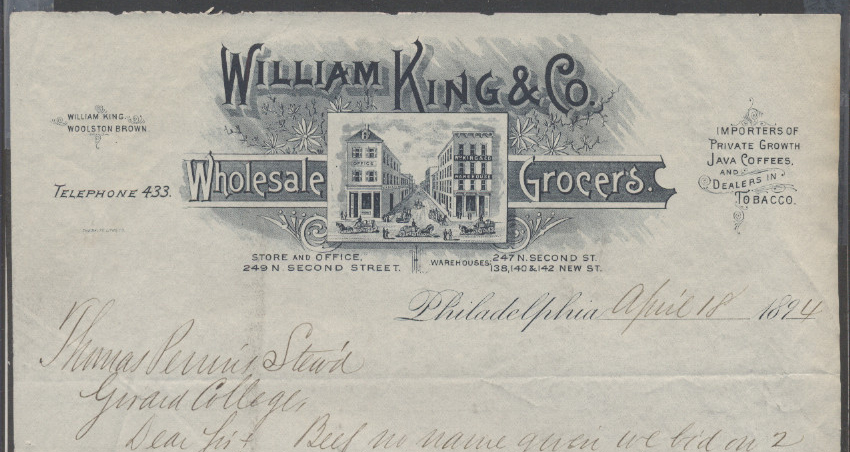 WILLIAM KING & CO.
WILLIAM KING.
WOOLSTON BROWN.
IMPORTERS OF
PRIVATE GROWTH
JAVA COFFEES,
AND
DEALERS IN
TOBACCO.
OFFICE
WM KING & CO
WAREHOUSE
Wholesale Grocers.
TELEPHONE 433.
STORE AND OFFICE,
249 N. SECOND STREET.
WAREHOUSES, 247 N. SECOND ST.
138, 140 & 142 NEW ST.
Philadelphia April 18 1894
Thomas Stew'd
Girard College,
Dear Sir Beef no name given we bid on 2